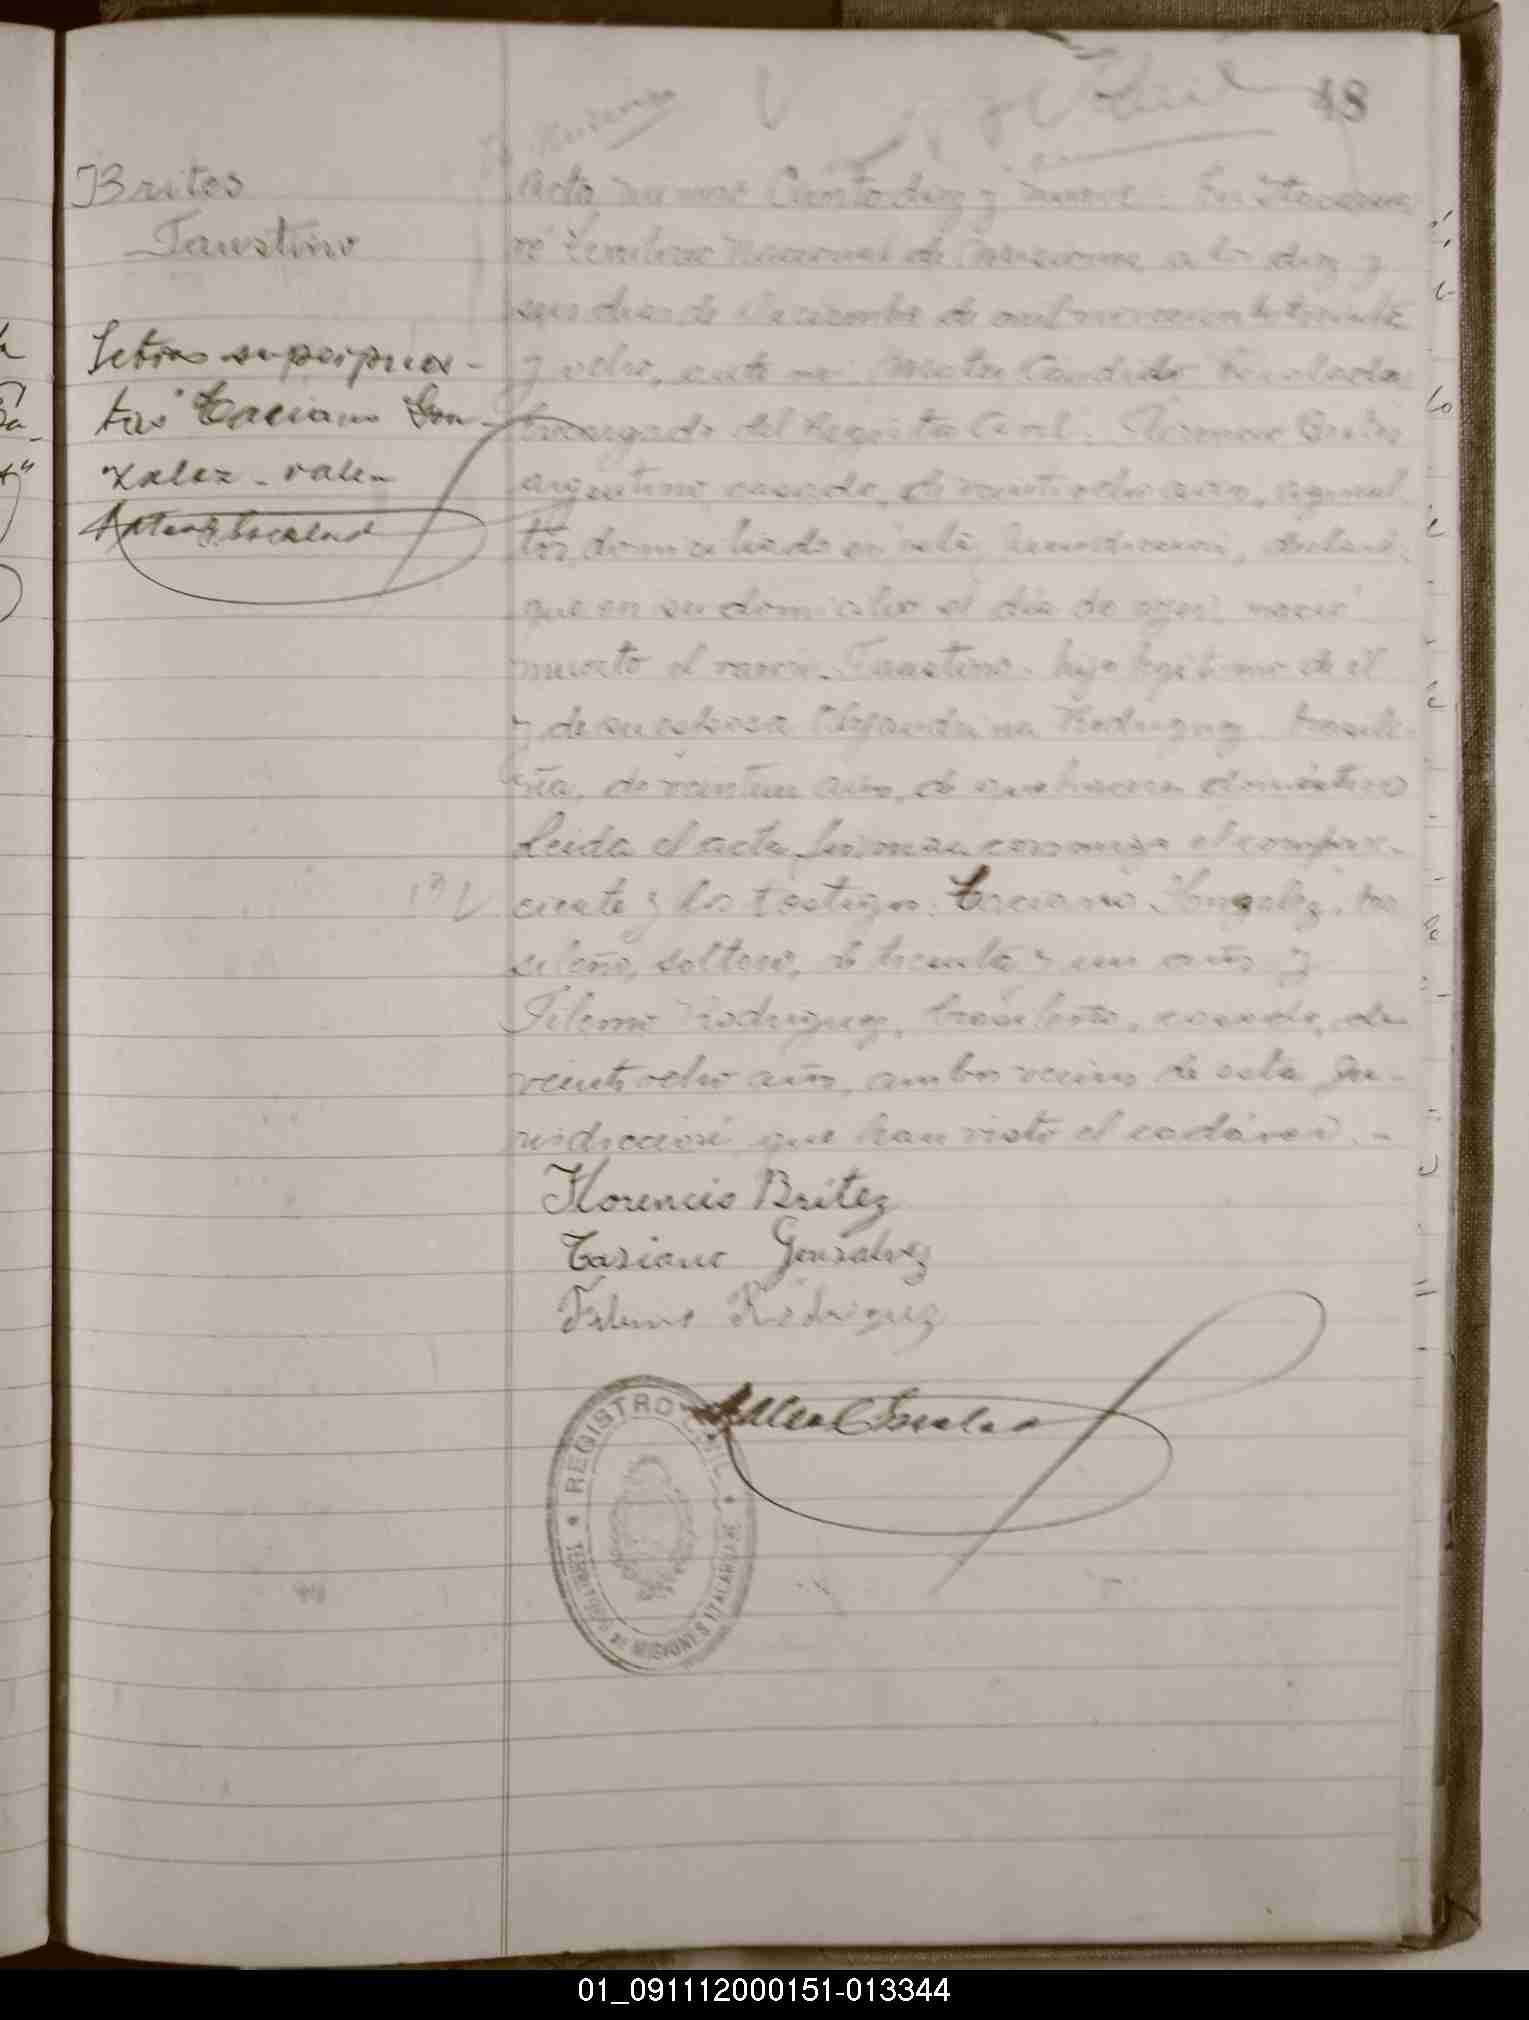 48
Britos
Faustino
Letras superpues-
tas "Taciano Gon-
zalez - valen
Acta número Ciento diez y nueve. En Itacarua-
ré Territorio Nacional de Misiones a los diez y
seis dias de Diciembre de mil novecientos treinta
y ocho, ante mi, Candido Escalada
Encargado del Registro Civil. Florencio Britez
argentino, casado, de veintiocho años, agricul
tor, domiciliado en esta jurisdicción, declaró:
que en su domicilio el dia de ayer, nació
muerto el varón Faustino. hijo legitimo de él
y de su esposa Alejandrina Rodriguez brasile-
ña, de veintiun años, de quehaceres domésticos
Leida el acta firman conmigo el compare-
ciente y los testigos: Taciano Gonzalez, bra
sileño, soltero, de treinta y un años y
Filemo Rodriguez, brasileño, casado, de
veintiocho años, ambos vecinos de esta ju-
risdicción que han visto el cadáver. -
Florencio Britez
Tasiano Gonzalvez
Filemo Rodriguez
REGISTRO CIVIL
TERRITORIO DE MISIONES ITACARUARE
01_091112000151-013344